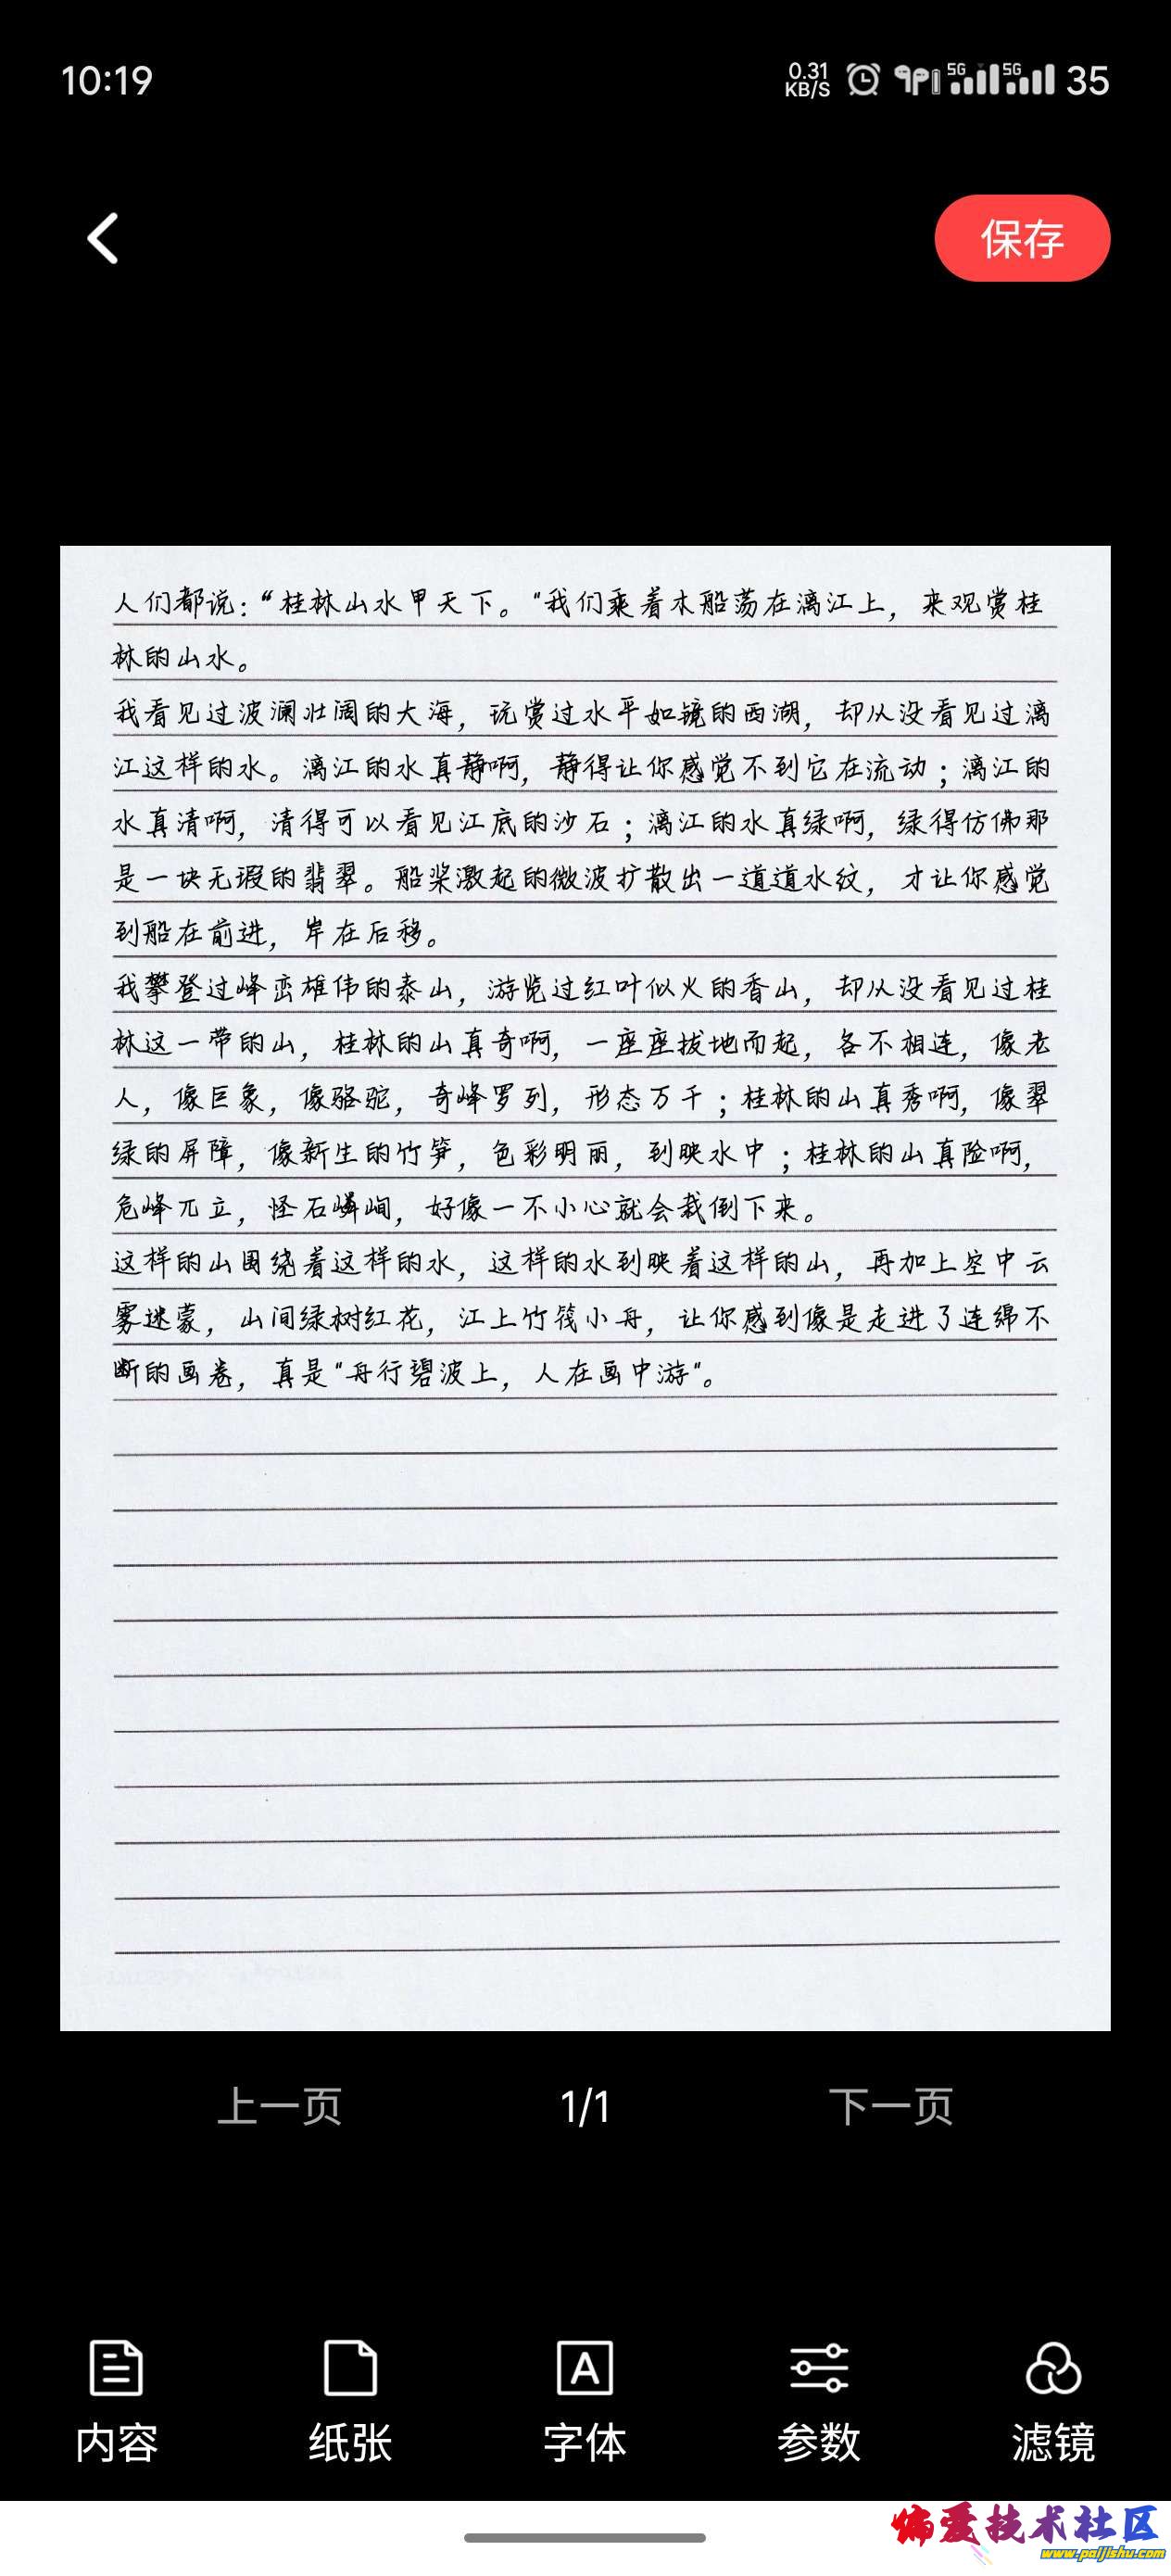 10:19
0.31
KB/S
5G
5G
35
保存
人们都说：“桂林山水甲天下。”我们乘着木船荡在漓江上，来观赏桂
林的山水。
我看见过波澜壮阔的大海，玩赏过水平如镜的西湖，却从没看见过漓
江这样的水。漓江的水真静啊，静得让你感觉不到它在流动；漓江的
水真清啊，清得可以看见江底的沙石；漓江的水真绿啊，绿得仿佛那
是一块无瑕的翡翠。船桨激起的微波扩散出一道道水纹，才让你感觉
到船在前进，岸在后移。
我攀登过峰峦雄伟的泰山，游览过红叶似火的香山，却从没看见过桂
林这一带的山，桂林的山真奇啊，一座座拔地而起，各不相连，像老
人，像巨象，像骆驼，奇峰罗列，形态万千；桂林的山真秀啊，像翠
绿的屏障，像新生的竹笋，色彩明丽，到映水中；桂林的山真险啊，
危峰兀立，怪石嶙峋，好像一不小心就会栽倒下来。
这样的山围绕着这样的水，这样的水到映着这样的山，再加上空中云
雾迷蒙，山间绿树红花，江上竹筏小舟，让你感到像是走进了连绵不
断的画卷，真是“舟行碧波上，人在画中游”。
上一页
1/1
下一页
内容
纸张
字体
参数
滤镜
偏爱技术社区
www.paijishu.com